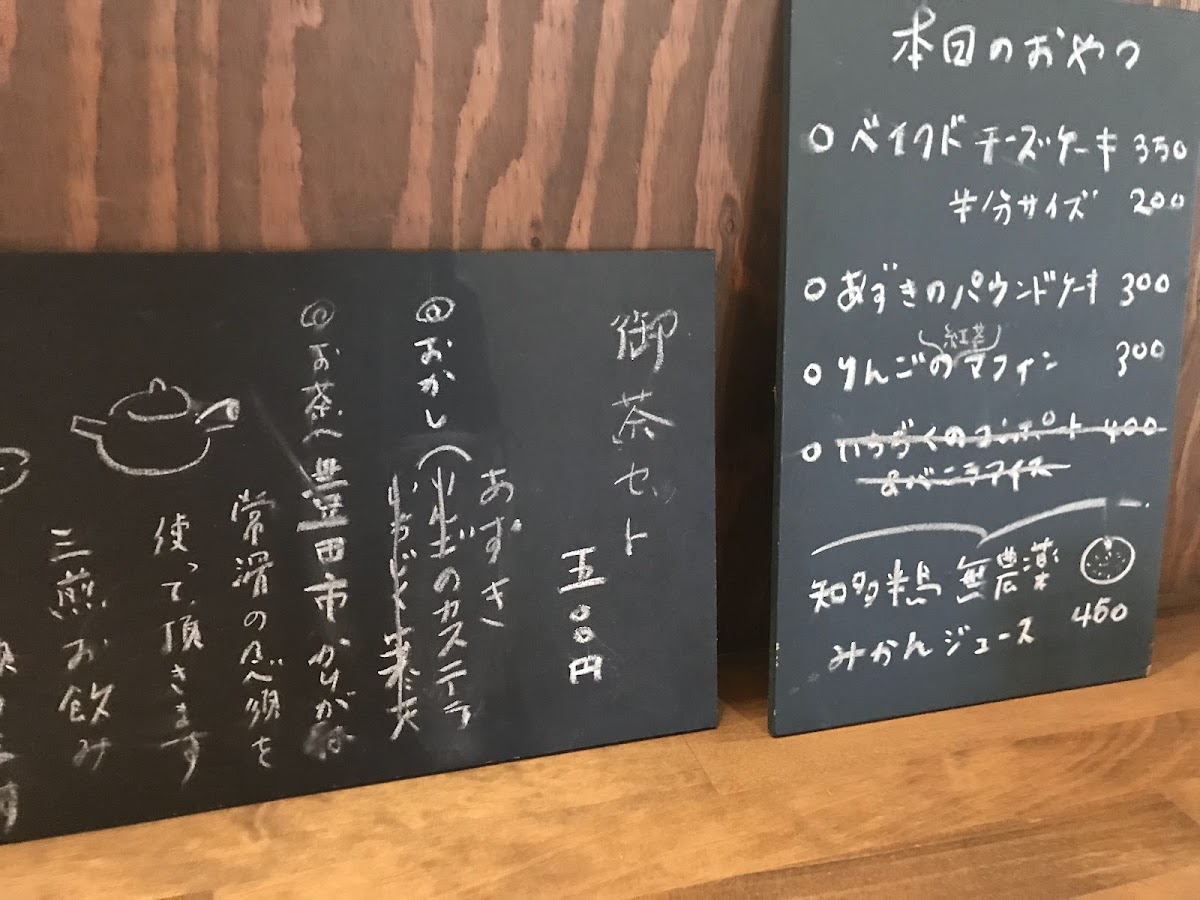 本日のおやつ
○ ベイクドチーズケーキ 350
半分サイズ 200
○ あずきのパウンドケーキ 300
紅茶
○ りんごのマフィン 300
○ いちぢくのコンポート 400
&バニラアイス
知多半島 無農薬
みかんジュース 450
御茶セット
五〇〇円
あずき
おかし(のカステラ
お茶へ豊田市
常滑の急須を
使って頂きます
三煎お飲み